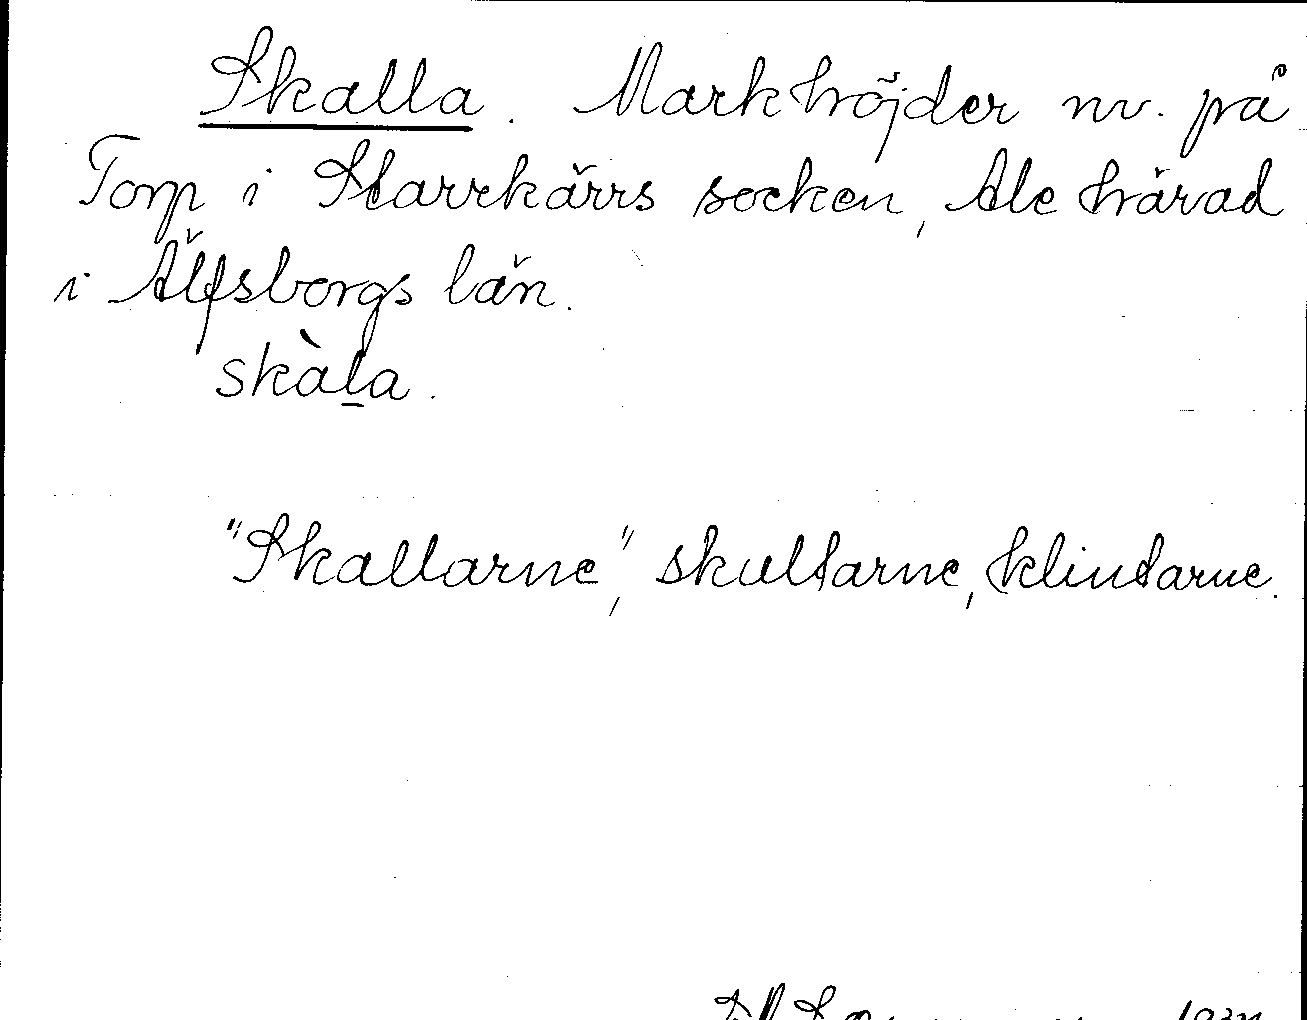 Skalla. Markhöjder nv. på
Torp i Starrkärrs socken, Ale härad
i Älfsborgs län.
skàl̠a.
"Skallarne", skultarne, klintarne.